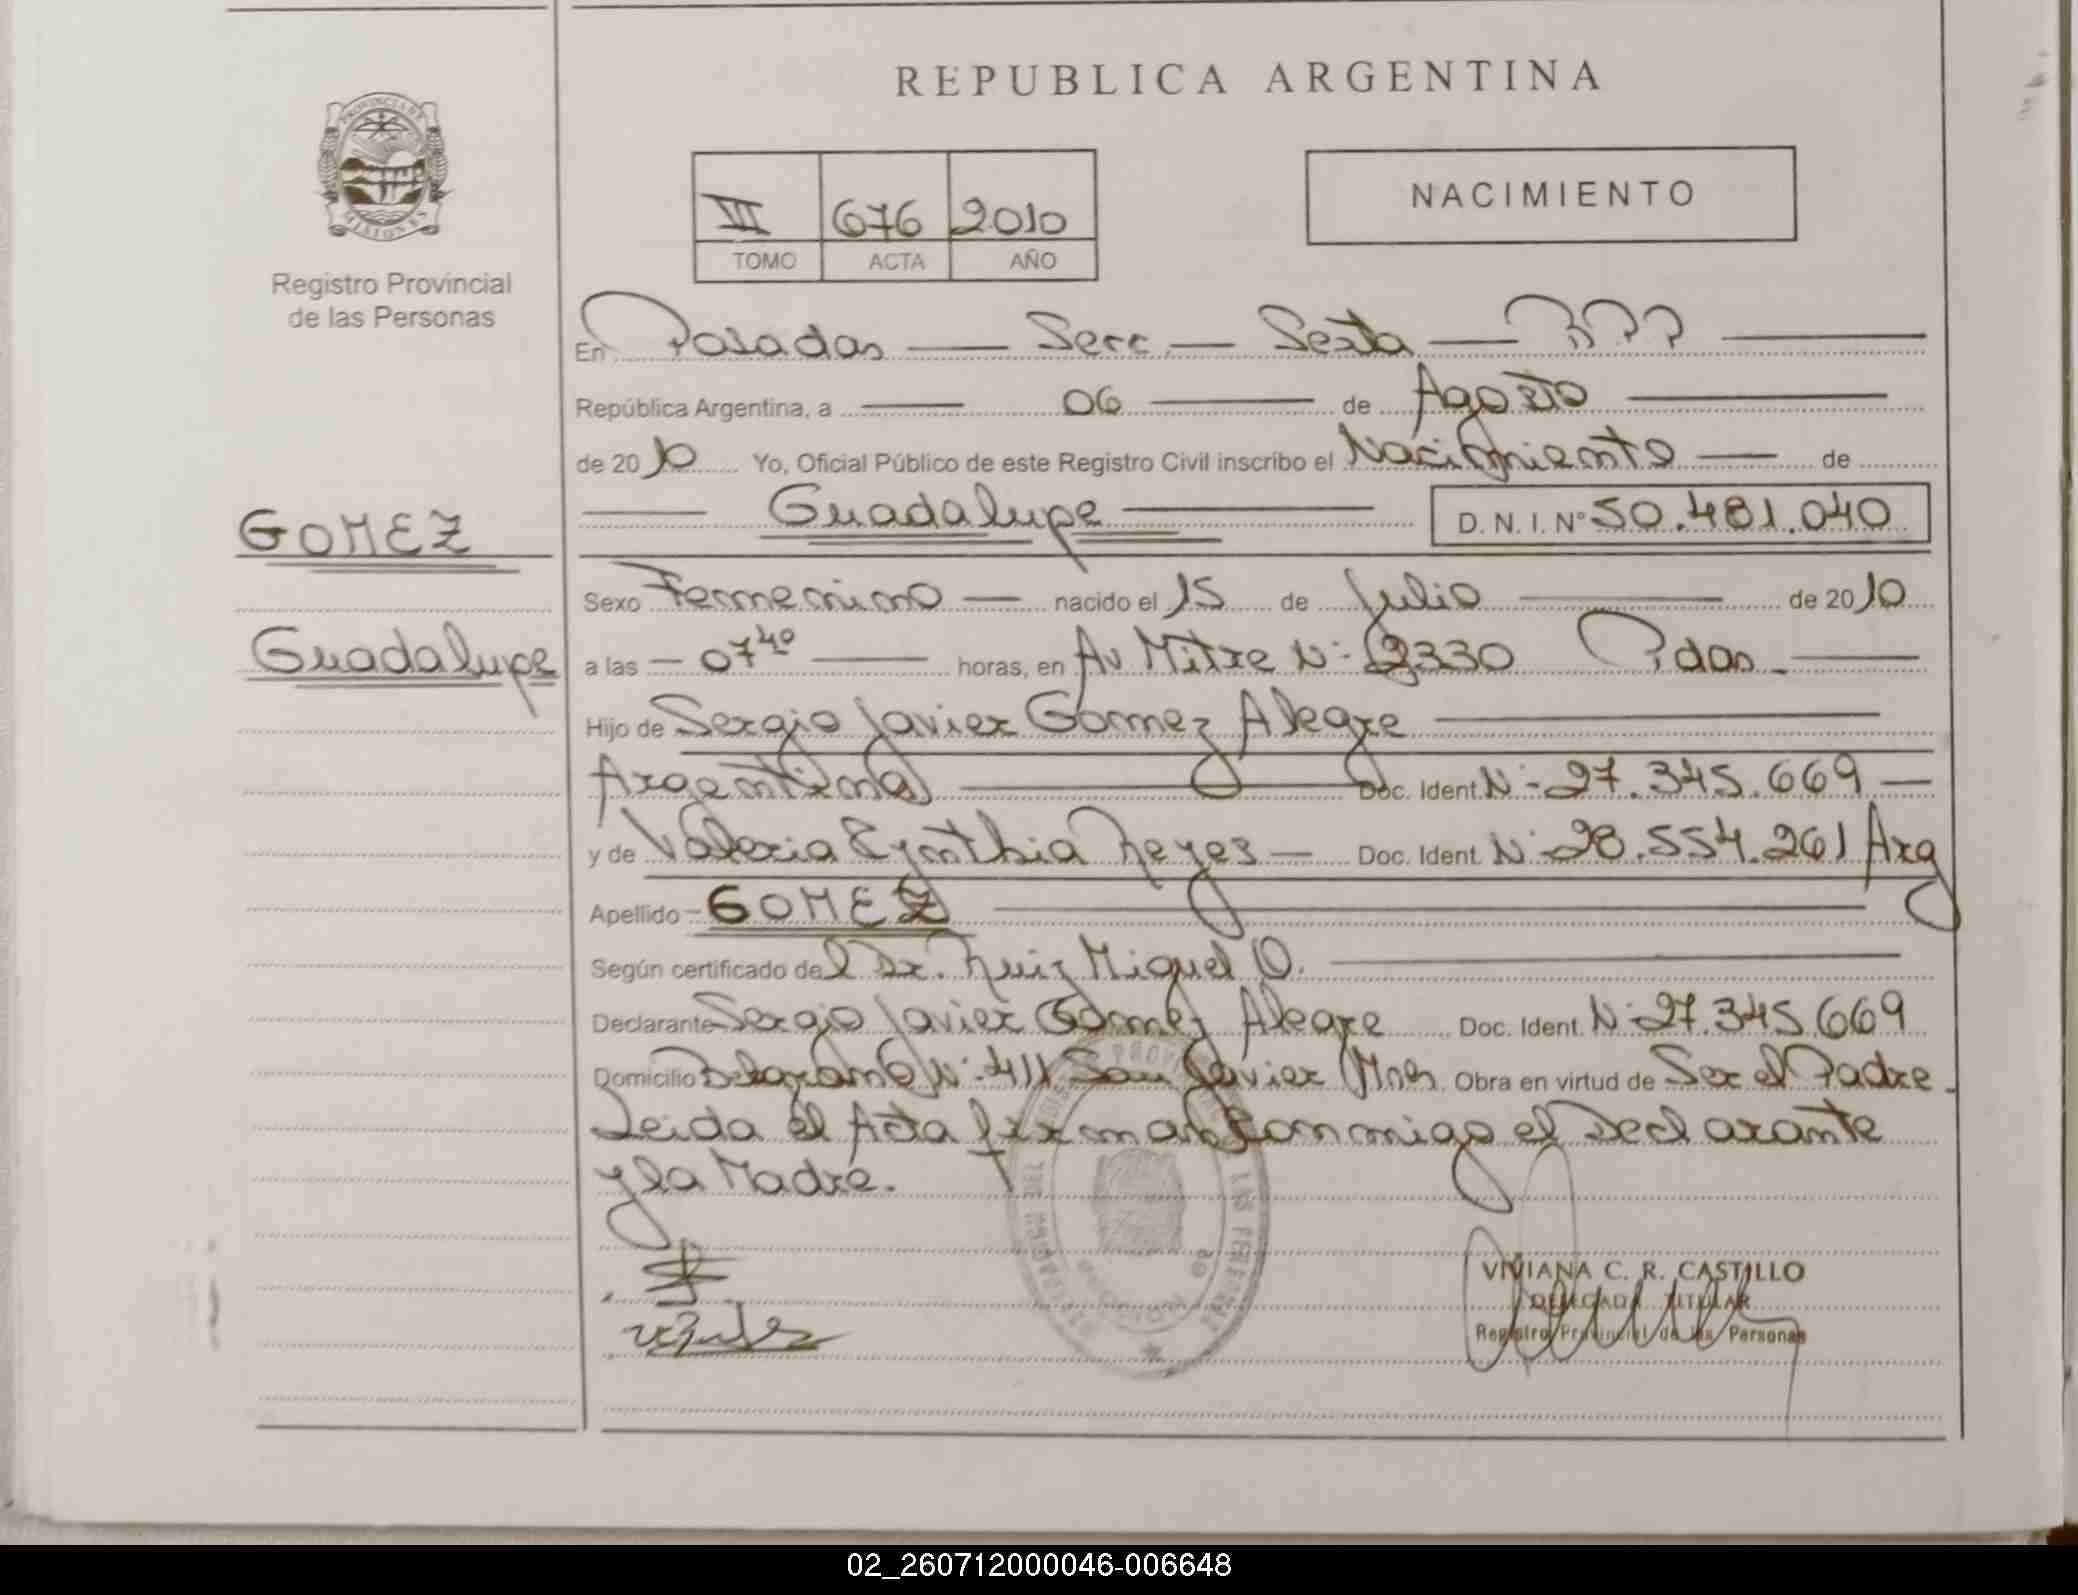 REPUBLICA ARGENTINA
PROVINCIA DE
MISIONES
Registro Provincial
de las Personas
III 676 2010
TOMO ACTA AÑO
NACIMIENTO
En Posadas — Secc. — Sexta —
República Argentina, a — 06 — de Agosto —
de 2010 Yo, Oficial Público de este Registro Civil inscribo el Nacimiento — de
— Guadalupe — D. N. I. Nº 50.481.040
GOMEZ
Guadalupe
Sexo Femenino — nacido el 15 de Julio — de 2010
a las — 07⁴⁰ — horas, en Av Mitre Nº 2330 Pdas. —
Hijo de Sergio Javier Gomez Alegre —
Argentina — Doc. Ident. Nº 27.345.669 —
y de Valeria Cynthia Reyes — Doc. Ident. Nº 28.554.261 Arg
Apellido — GOMEZ —
Según certificado del Dr. Ruiz Miguel O. —
Declarante Sergio Javier Gomez Alegre Doc. Ident. Nº 27.345.669
Domicilio Belgrano Nº 411 San Javier Mnes. Obra en virtud de Ser el Padre.
Leida el Acta firman conmigo el Declarante
y la Madre.
VIVIANA C. R. CASTILLO
DELEGADA TITULAR
Registro Provincial de las Personas
02_260712000046-006648